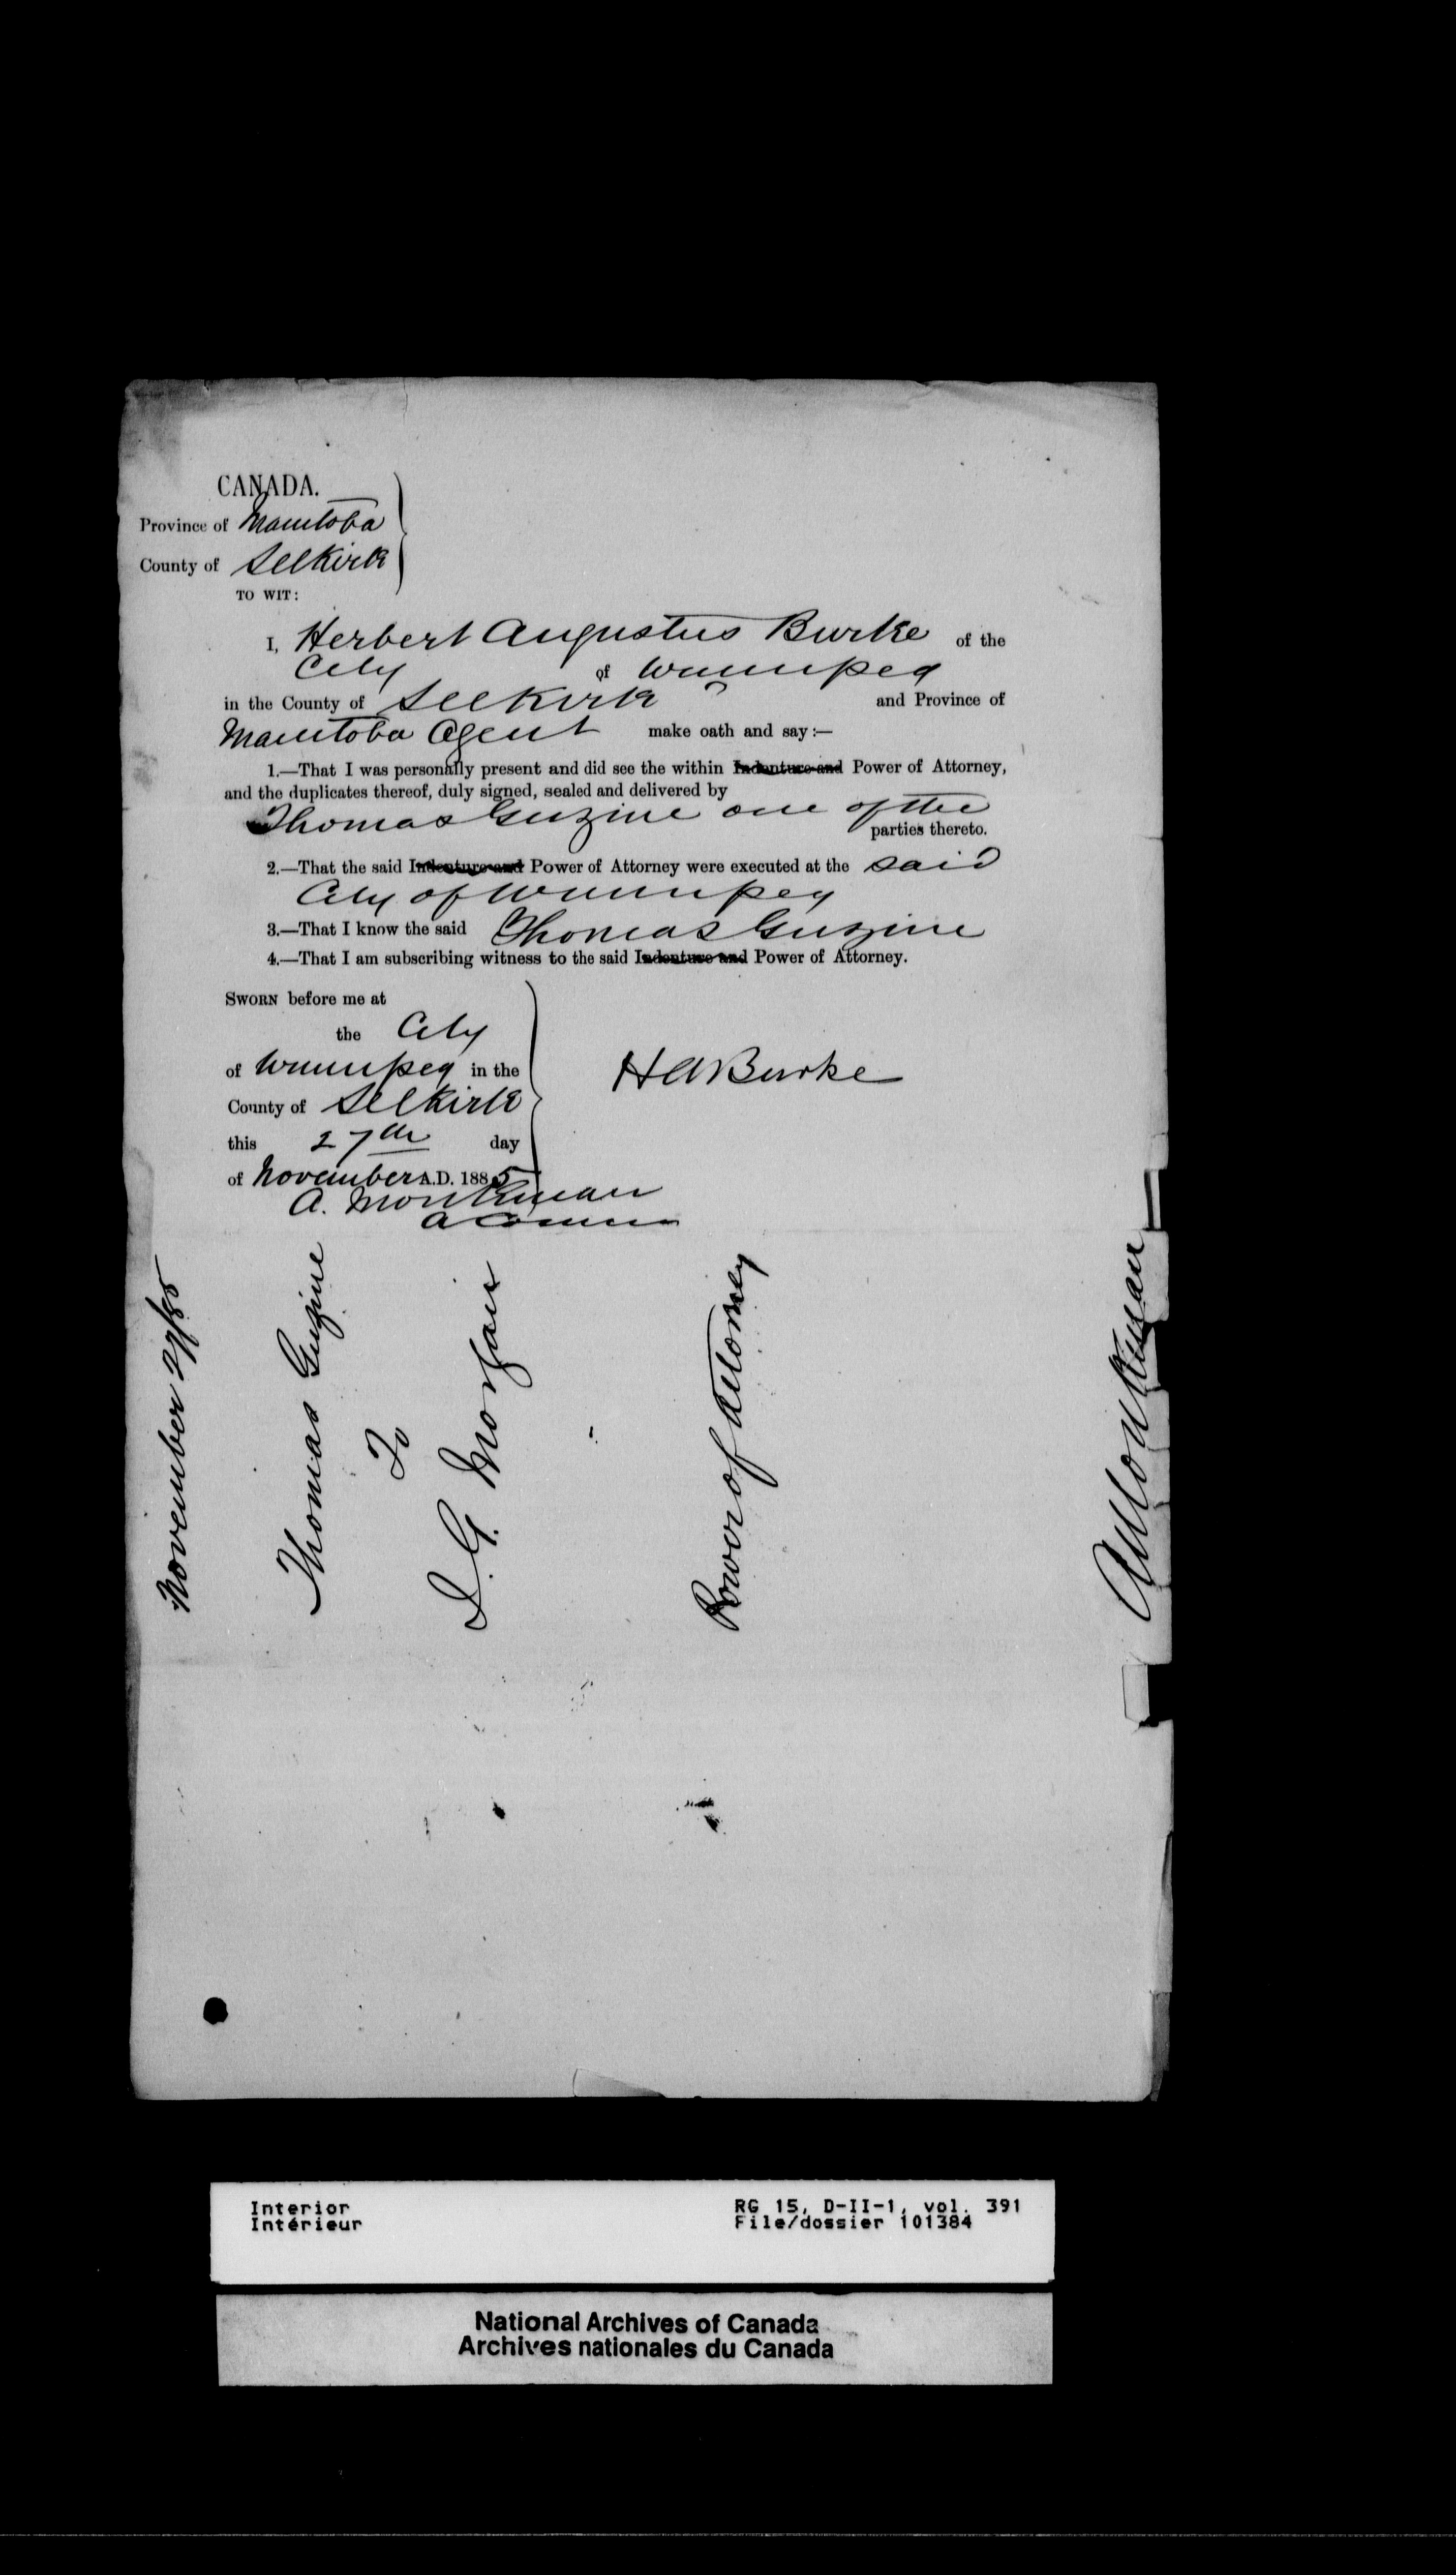 CANADA.
Province of Manitoba
County of Selkirk
TO WIT:
I, Herbert Augustus Burke of the
City of Winnipeg
in the County of Selkirk and Province of
Manitoba Agent make oath and say:—
1.—That I was personally present and did see the within Indenture and Power of Attorney,
and the duplicates thereof, duly signed, sealed and delivered by
Thomas Guzine one of the
parties thereto.
2.—That the said Indenture and Power of Attorney were executed at the said
City of Winnipeg
3.—That I know the said Thomas Guzine
4.—That I am subscribing witness to the said Indenture and Power of Attorney.
SWORN before me at
the City
of Winnipeg in the
County of Selkirk
this 27th day
of November A.D. 1885
H A Burke
A. Monkman
A Comm
November 27/85
Thomas Guzine
To
D. G. Morfair
Power of Attorney
A Monkman
Interior
Intérieur
RG 15, D-II-1, vol. 391
File/dossier 101384
National Archives of Canada
Archives nationales du Canada